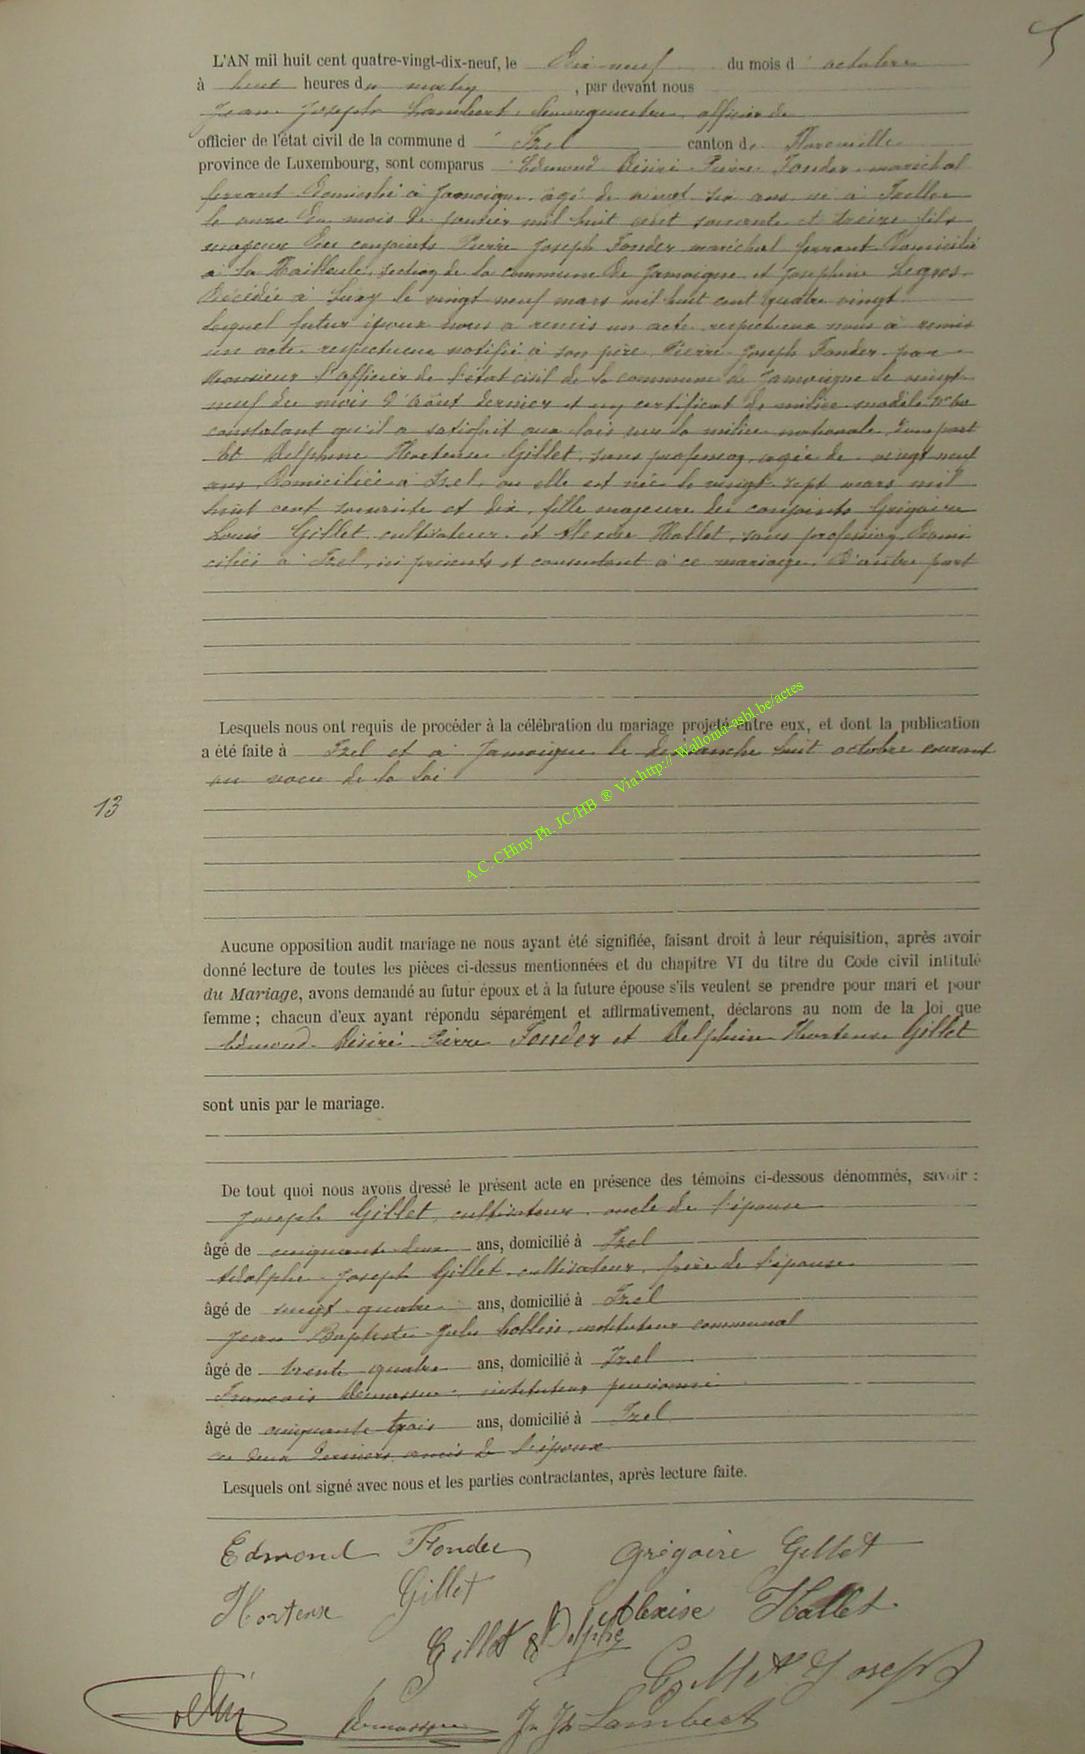 5
L'AN mil huit cent quatre-vingt-dix-neuf, le Dix neuf du mois d'octobre
à huit heures du matin, par devant nous
Jean Joseph Lambert, bourgmestre, officier de
officier de l'état civil de la commune d'Izel canton de Florenville
province de Luxembourg, sont comparus Edmond Désiré Pierre Fonder maréchal
ferrant domicilié à Jamoigne âgé de vingt six ans né à
le onze du mois de janvier mil huit cent soixante et treize fils
majeur des conjoints Pierre Joseph Fonder maréchal ferrant domicilié
à La Hailleule, section de la commune de Jamoigne et Joséphine Legros
décédée à Suxy le vingt neuf mars mil huit cent quatre vingt
lequel futur époux nous a remis un acte respectueux nous a remis
un acte respectueux notifié à son père Pierre Joseph Fonder par
Monsieur l'officier de l'état civil de la commune de Jamoigne le vingt
neuf du mois d'Août dernier et un certificat de milice modèle
constatant qu'il a satisfait aux lois sur la milice nationale, d'une part
Et Delphine Hortense Gillet, sans profession, agée de vingt neuf
ans, domiciliée à Izel, où elle est née le vingt sept mars mil
huit cent soixante et dix, fille majeure des conjoints Grégoire
Louis Gillet cultivateur et Hallet, sans profession domi
ciliés à Izel, ici présents et consentant à ce mariage. D'autre part
Lesquels nous ont requis de procéder à la célébration du mariage projeté entre eux, et dont la publication
a été faite à Izel et à Jamoigne le dimanche huit octobre courant
au voeu de la loi
13
A.C. CHiny Ph. JC/HB ® Via http:// Wallonia-asbl.be/actes
Aucune opposition audit mariage ne nous ayant été signifiée, faisant droit à leur réquisition, après avoir
donné lecture de toutes les pièces ci-dessus mentionnées et du chapitre VI du titre du Code civil intitulé
du Mariage, avons demandé au futur époux et à la future épouse s'ils veulent se prendre pour mari et pour
femme ; chacun d'eux ayant répondu séparément et affirmativement, déclarons au nom de la loi que
Edmond Désiré Pierre Fonder et Delphine Hortense Gillet
sont unis par le mariage.
De tout quoi nous avons dressé le présent acte en présence des témoins ci-dessous dénommés, savoir :
Joseph Gillet, cultivateur oncle de l'épouse
âgé de cinquante deux ans, domicilié à Izel
Adolphe Joseph Gillet cultivateur, frère de l'épouse
âgé de vingt quatre ans, domicilié à Izel
Jean Baptiste Jules Collin, instituteur communal
âgé de trente quatre ans, domicilié à Izel
François instituteur pensionné
âgé de cinquante trois ans, domicilié à Izel
ces deux derniers amis de l'époux
Lesquels ont signé avec nous et les parties contractantes, après lecture faite.
Edmond Fonder Grégoire Gillet
Hortense Gillet Alexise Hallet
Gillet Adolphe
Gillet Joseph
Collin Jn Jh Lambert